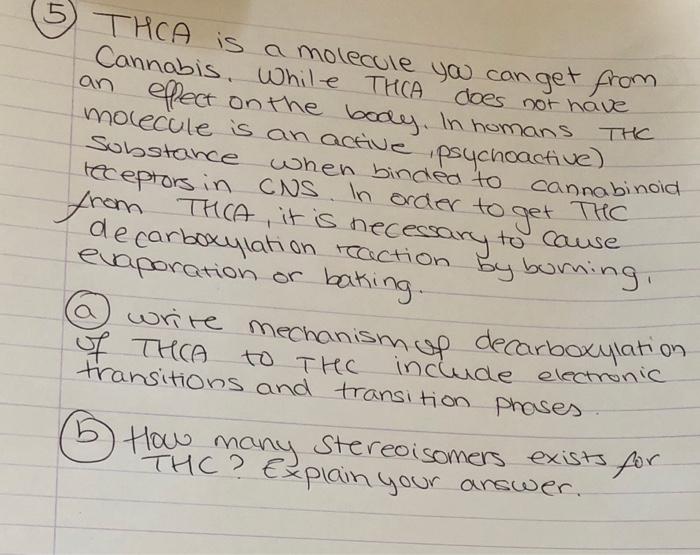 5 THCA is a molecule you can get from
Cannabis. While THCA does not have
an effect on the body. In humans THC
molecule is an active (psychoactive)
substance when binded to cannabinoid
receptors in CNS. In order to get THC
from THCA, it is necessary to cause
decarboxylation reaction by burning,
evaporation or baking.
a write mechanism of decarboxylation
of THCA to THC include electronic
transitions and transition phases.
b How many stereoisomers exists for
THC? Explain your answer.